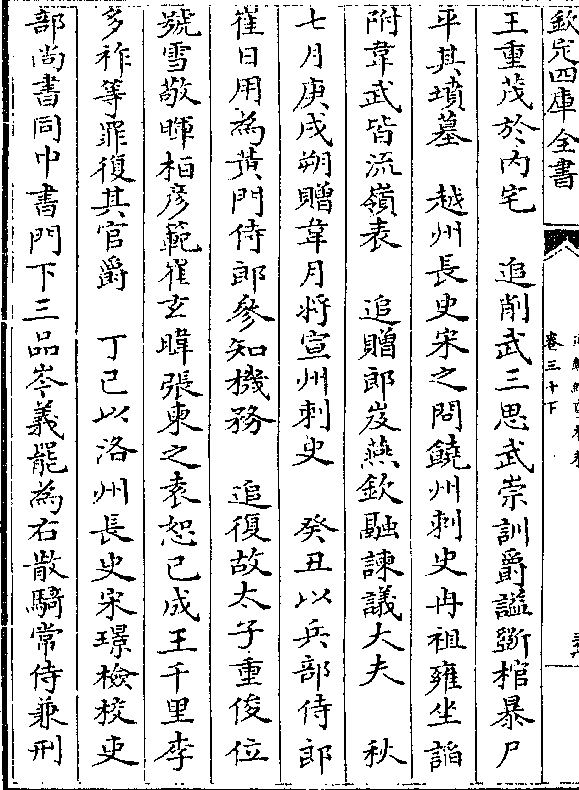 欽定四庫全書
卷三十下
王重茂於内宅　追削武三思武崇訓爵謚斵棺暴尸
平其墳墓　越州長史宋之問饒州刺史冉祖雍坐謟
附韋武皆流嶺表　追贈郎岌燕欽融諫議大夫　秋
七月庚戌朔贈韋月将宣州刺史　癸丑以兵部侍郎
崔日用為黃門侍郎參知機務　追復故太子重俊位
號雪敬暉桓彦範崔玄暐張柬之袁恕已成王千里李
多祚等罪復其官爵　丁已以洛州長史宋璟檢校吏
部尚書同中書門下三品岑羲罷為右散騎常侍兼刑